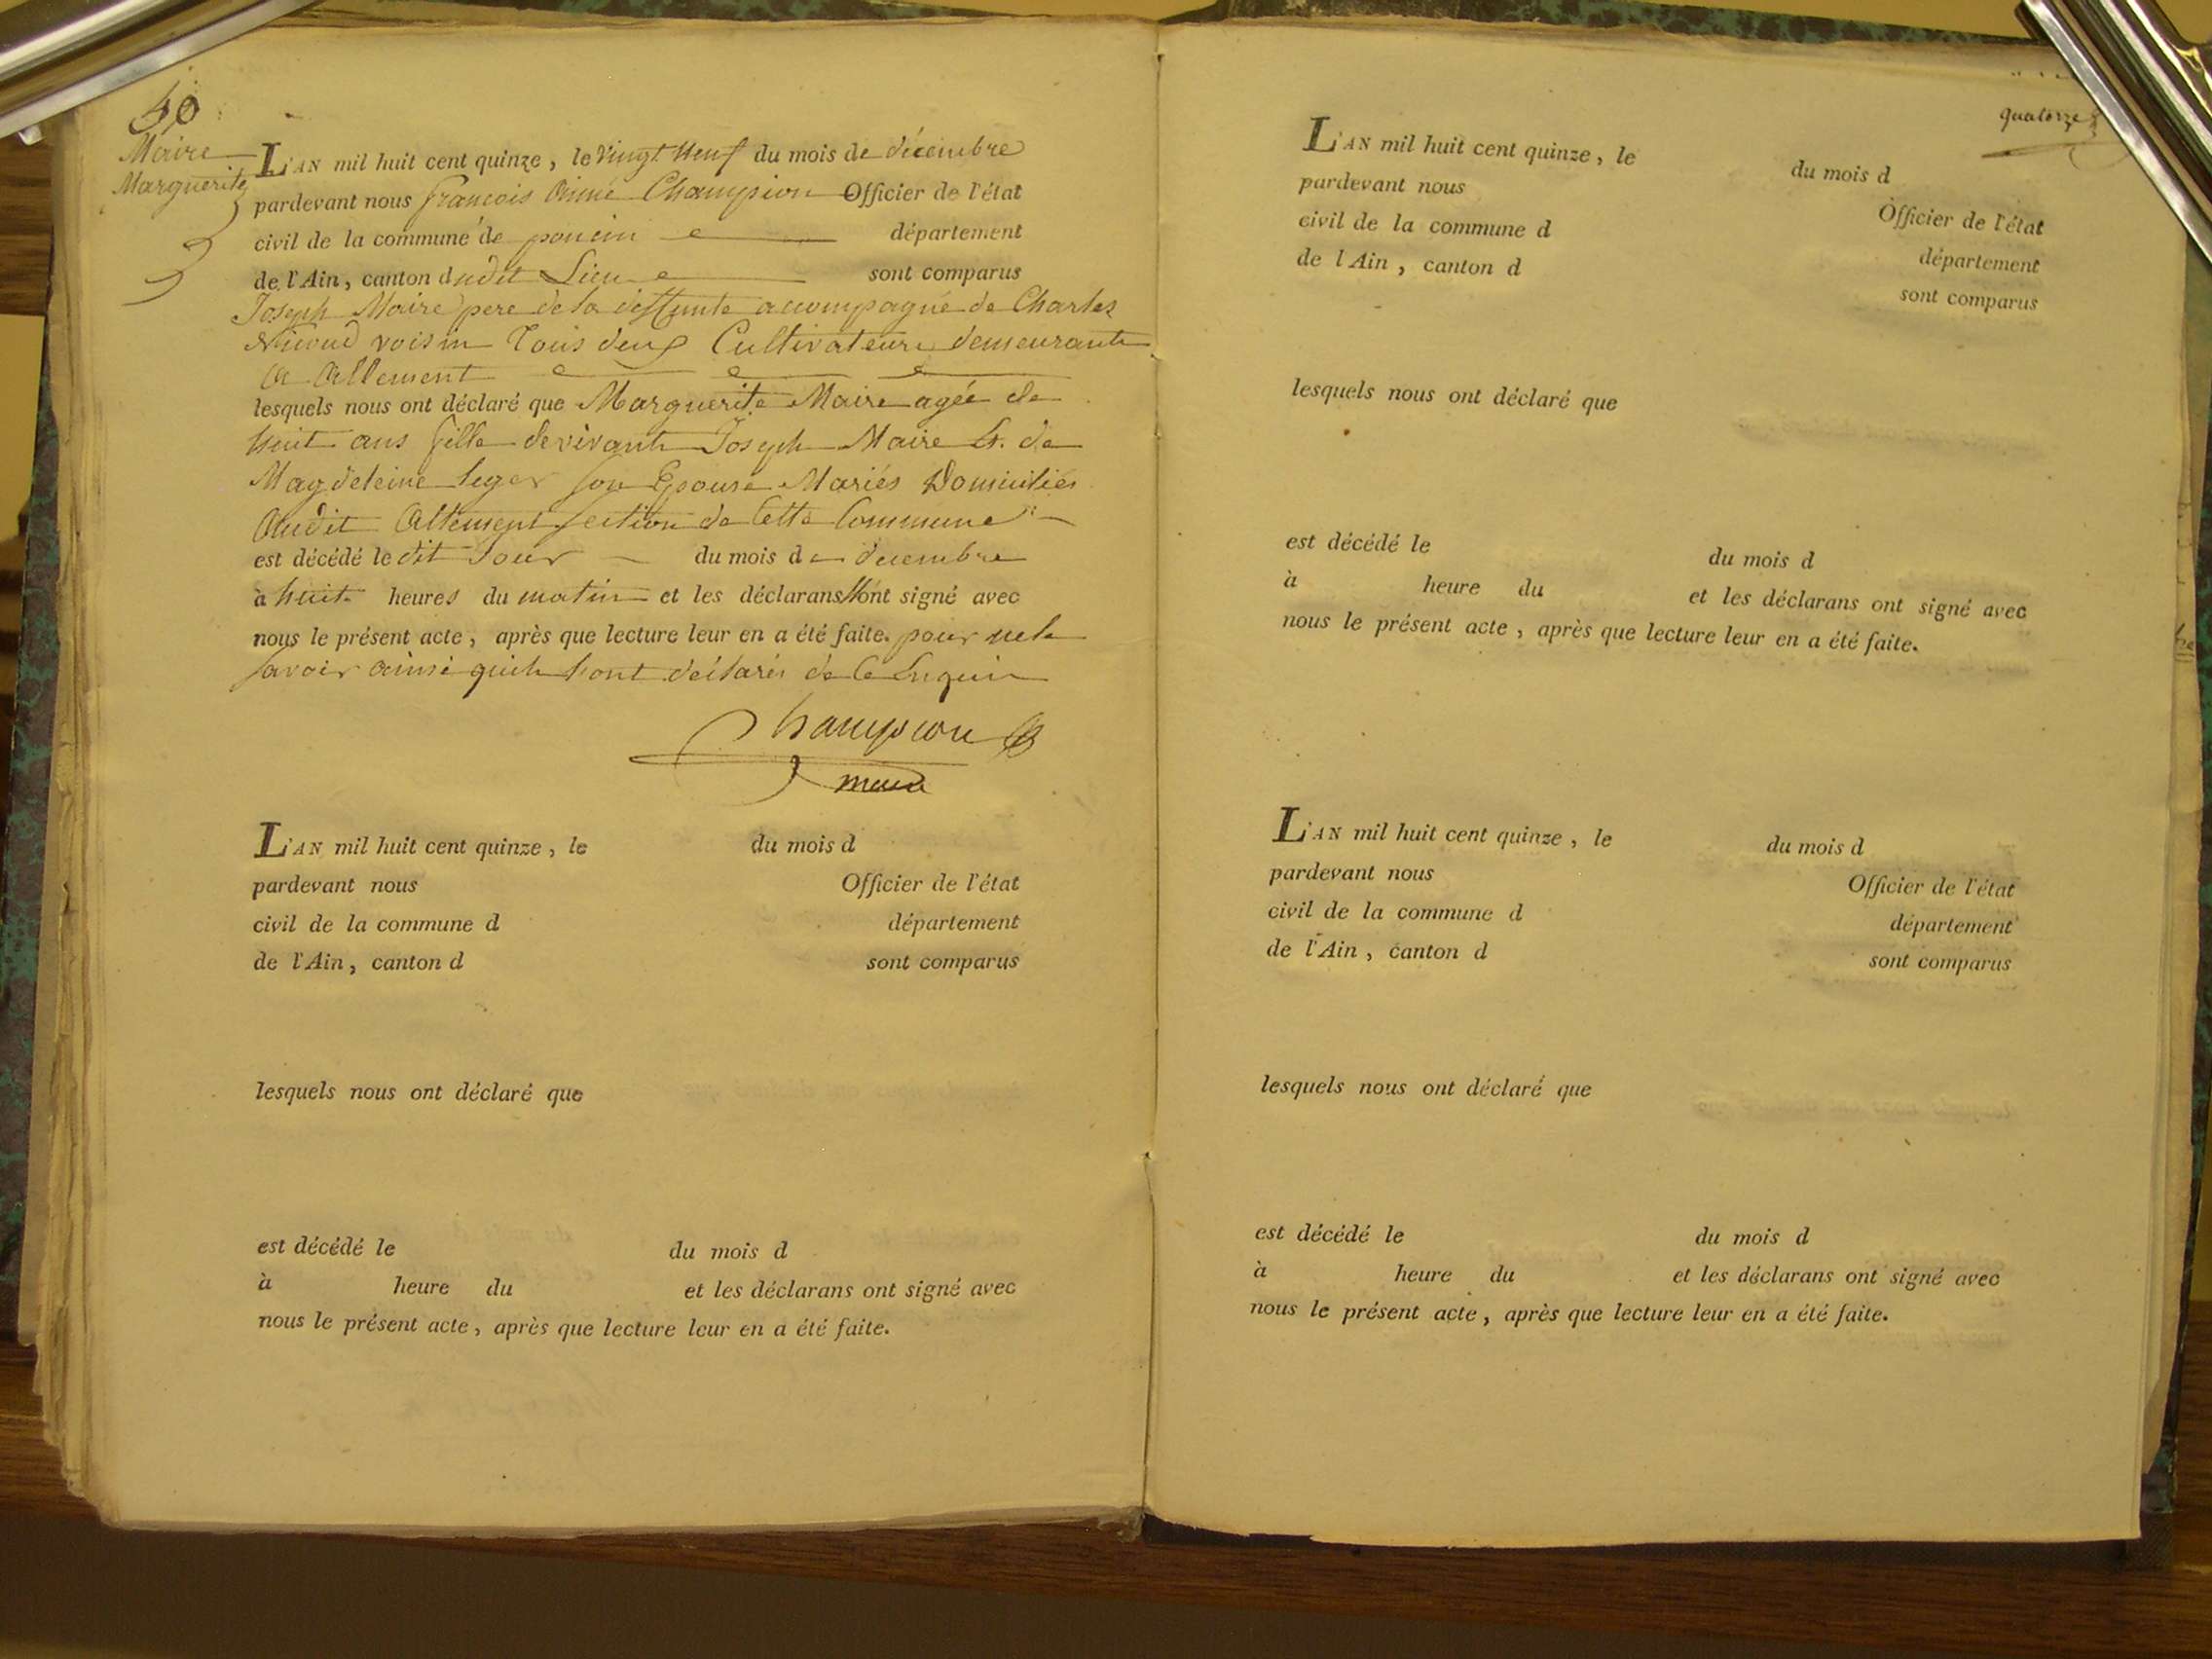 40
Maire
Marguerite
L'AN mil huit cent quinze, le vingt neuf du mois de décembre
pardevant nous françois Aimé Champion Officier de l'état
civil de la commune de poncin département
de l'Ain, canton dudit Lieu sont comparus
Joseph Maire pere de la deffunte accompagné de Charles
voisin Tous deux Cultivateurs demeurants
a Allement
lesquels nous ont déclaré que Marguerite Maire agée de
huit ans fille de vivants Joseph Maire & de
Magdeleine leger son Epouse Mariés Domiciliés
Audit Allement section de Cette Commune
est décédé le dit Jour du mois de decembre
à huit heures du matin et les déclarans n'ont signé avec
nous le présent acte, après que lecture leur en a été faite. pour ne le
savoir ainsi qu'ils l'ont déclarés de Ce Enquis
Champion
maire
L'AN mil huit cent quinze, le du mois d
pardevant nous Officier de l'état
civil de la commune d département
de l'Ain, canton d sont comparus
lesquels nous ont déclaré que
est décédé le du mois d
à heure du et les déclarans ont signé avec
nous le présent acte, après que lecture leur en a été faite.
quatorze
L'AN mil huit cent quinze, le du mois d
pardevant nous Officier de l'état
civil de la commune d département
de l'Ain, canton d sont comparus
lesquels nous ont déclaré que
est décédé le du mois d
à heure du et les déclarans ont signé avec
nous le présent acte, après que lecture leur en a été faite.
L'AN mil huit cent quinze, le du mois d
pardevant nous Officier de l'état
civil de la commune d département
de l'Ain, canton d sont comparus
lesquels nous ont déclaré que
est décédé le du mois d
à heure du et les déclarans ont signé avec
nous le présent acte, après que lecture leur en a été faite.